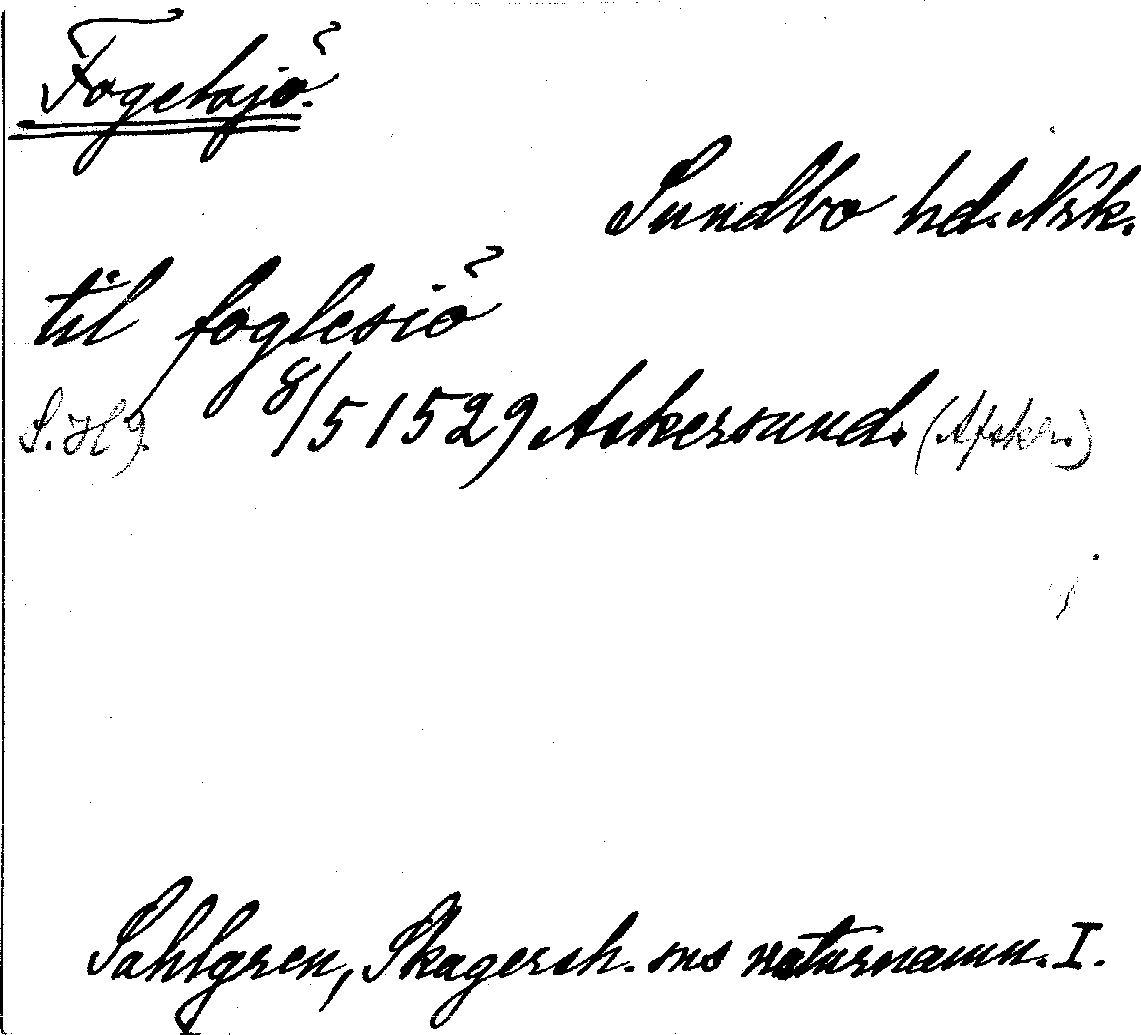 Fogelsjö.
Sundbo hd. Nrk.
til foglesiö
S. H 9. 8/5 1529 Askersund. (Afskr.)
Sahlgren, Skagersh. sns naturnamn. I.